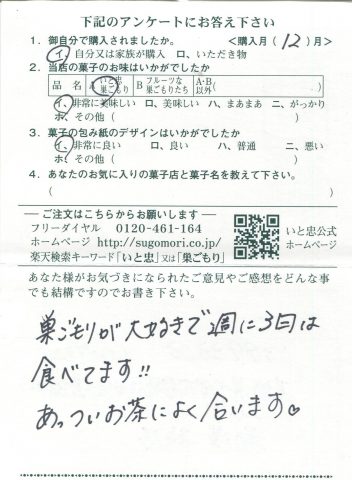 下記のアンケートにお答え下さい
1. 御自分で購入されましたか。 <購入月(12)月>
イ、自分又は家族が購入 ロ、いただき物
2. 当店の菓子のお味はいかがでしたか
品名 A いと忠巣ごもり B フルーツな巣ごもりたち A・B以外( )
イ、非常に美味しい ロ、美味しい ハ、まあまあ ニ、がっかり
ホ、その他( )
3. 菓子の包み紙のデザインはいかがでしたか
イ、非常に良い ロ、良い ハ、普通 ニ、悪い
ホ、その他( )
4. あなたのお気に入りの菓子店と菓子名を教えて下さい。
( )
―ご注文はこちらからお願いします―
フリーダイヤル 0120-461-164
ホームページ http://sugomori.co.jp/
楽天検索キーワード「いと忠」又は「巣ごもり」
いと忠公式
ホームページ
あなた様がお気づきになられたご意見やご感想をどんな事
でも結構ですのでお書き下さい。
巣ごもりが大好きで週に3回は
食べてます!!
あっついお茶によく合います♡